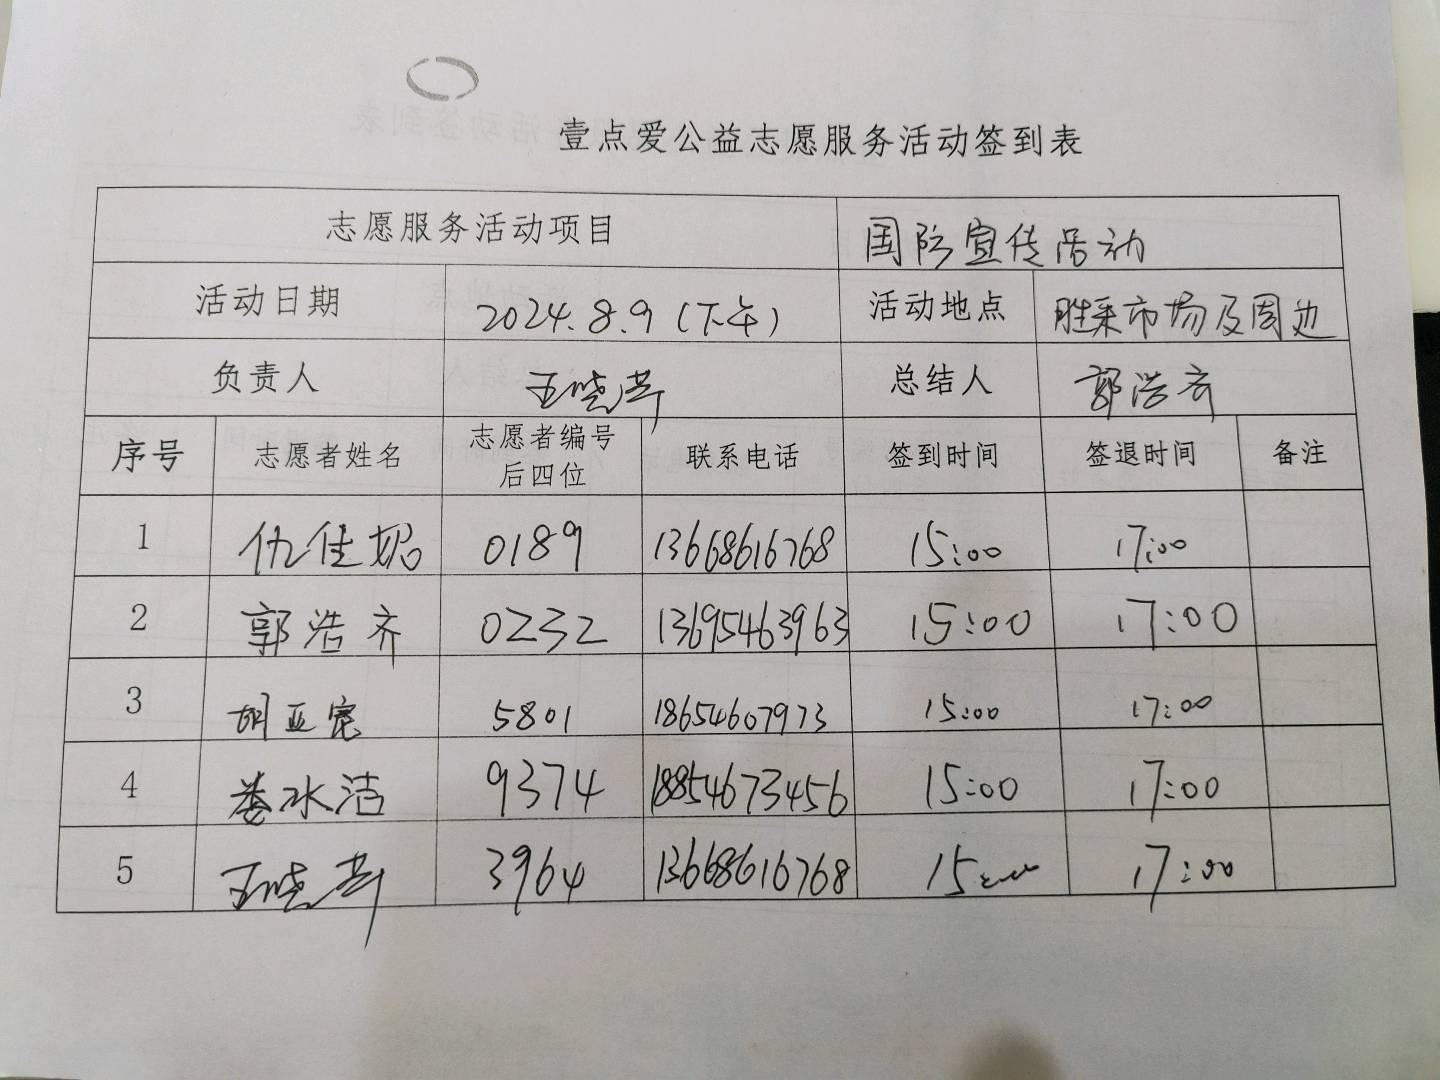 壹点爱公益志愿服务活动签到表
志愿服务活动项目 国防宣传活动
活动日期 2024.8.9(下午) 活动地点 胜采市场及周边
负责人 王晓芳 总结人 郭浩齐
序号 志愿者姓名 志愿者编号后四位 联系电话 签到时间 签退时间 备注
1 仇佳妮 0189 13668616768 15:00 17:00
2 郭浩齐 0232 13695463963 15:00 17:00
3 胡亚宽 5801 18654607973 15:00 17:00
4 水洁 9374 18854673456 15:00 17:00
5 王晓芳 3964 13668616768 15:00 17:00